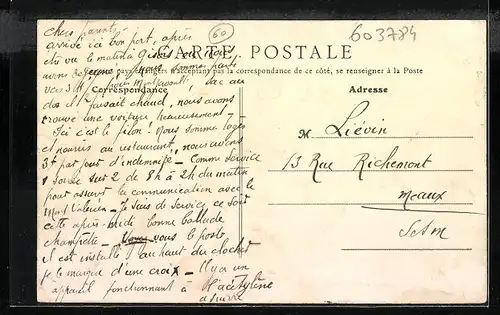 chers parents
60
603784
arrivé ici bon port, après
CARTE POSTALE
été vu le matin à Gisors où nous
avons déjeuné, nous sommes parti
pays étrangers n'acceptant pas la correspondance de ce côté, se renseigner à la Poste
vers 3h pour sac au
Correspondance
Adresse
dos il faisait chaud, nous avons
trouvé une voiture heureusement
Ici c'est le filon! Nous somme logés
et nourris au restaurant, nous avons
3f par jour d'indemnité - Comme service
1 soirée sur 2 de 8h à 2h du matin
pour assurer la communication avec le
Mont Valérien - Je suis de service ce soir
cette après-midi bonne ballade
champêtre - vous le poste
il est installé au haut du clocher
je le marque d'une croix - Il y a un
appareil fonctionnant à l'acétylène
à suivre
M. Liévin
13 Rue Richemont
Meaux
S et M